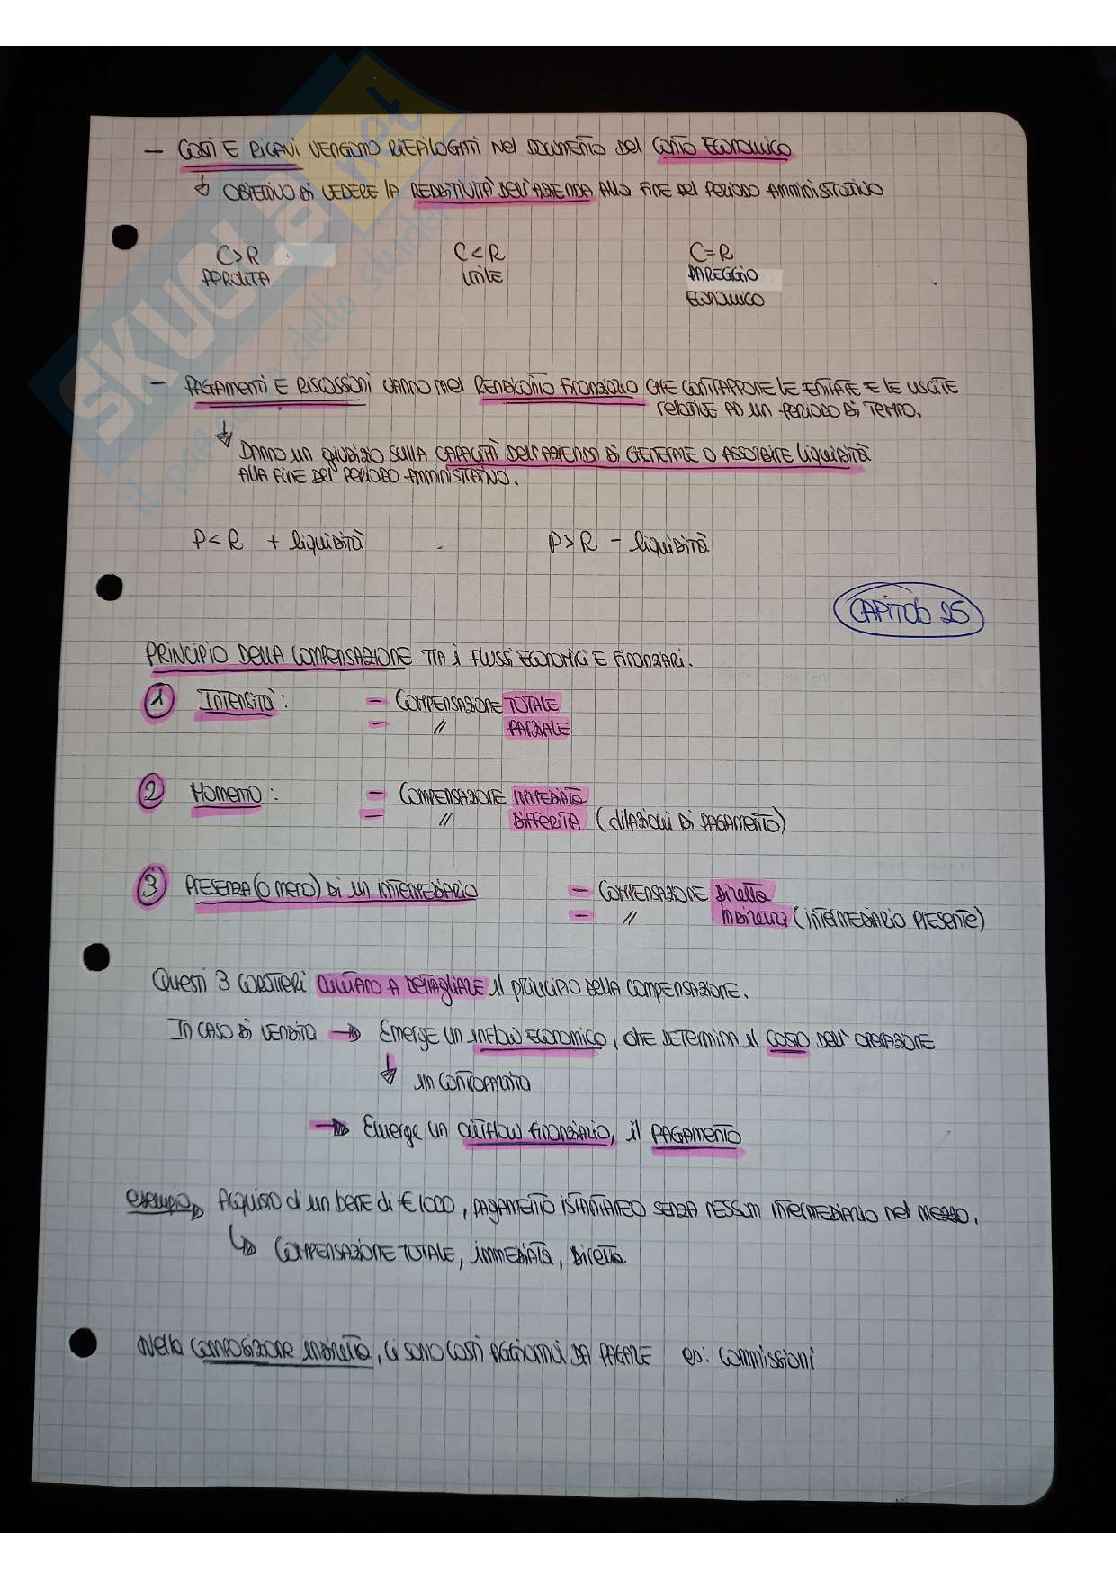 - COSTI E RICAVI VENGONO RIEPILOGATI nel DOCUMENTO DEL CONTO ECONOMICO
↳ OBIETTIVO DI VEDERE LA REDDITIVITÀ DELL'AZIENDA ALLA FINE DEL PERIODO AMMINISTRATIVO
C>R C<R C=R
PERDITA UTILE PAREGGIO
ECONOMICO
- PAGAMENTI E RISCOSSIONI VANNO nel RENDICONTO FINANZIARIO CHE CONTRAPPONE LE ENTRATE E LE USCITE
relative AD un PERIODO DI TEMPO.
↳ DANNO un GIUDIZIO SULLA CAPACITÀ DELL'AZIENDA DI GENERARE O ASSORBIRE liquidità
ALLA FINE DEL PERIODO AMMINISTRATIVO.
P<R + liquidità P>R - liquidità
CAPITOLO 25
PRINCIPIO DELLA COMPENSAZIONE TRA i FLUSSI ECONOMICI E FINANZIARI.
1 INTENSITÀ: - COMPENSAZIONE TOTALE
- " PARZIALE
2 MOMENTO: - COMPENSAZIONE IMMEDIATA
- " DIFFERITA (dilazioni DI PAGAMENTO)
3 PRESENZA (O MENO) DI un INTERMEDIARIO - COMPENSAZIONE Diretta
- " INDIRETTA (INTERMEDIARIO PRESENTE)
Questi 3 CARATTERI AIUTANO A DETTAGLIARE il principio DELLA COMPENSAZIONE.
In CASO DI VENDITA → Emerge un inflow economico, CHE DETERMINA il COSTO DELL'OPERAZIONE
↓ in contropartita
→ Emerge un outflow finanziario, il PAGAMENTO
esempio → Acquisto di un bene di € 1000, PAGAMENTO ISTANTANEO SENZA NESSUN INTERMEDIARIO nel MEZZO.
↳ COMPENSAZIONE TOTALE, IMMEDIATA, Diretta.
Nella COMPENSAZIONE INDIRETTA, ci sono costi AGGIUNTIVI DA PAGARE es. commissioni
SKUOLA.net